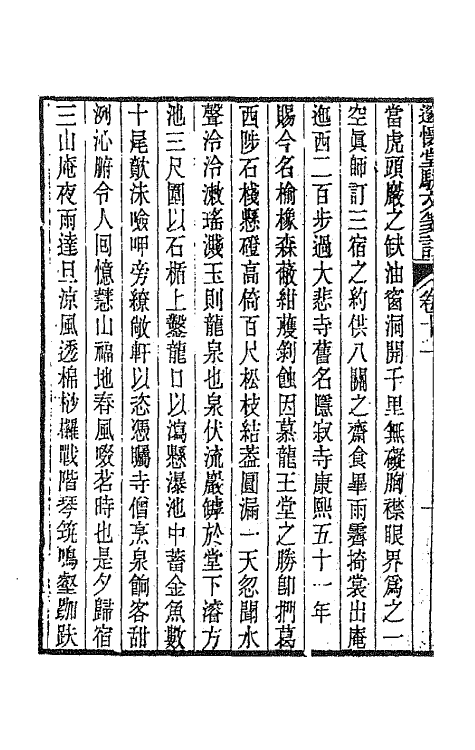 邃懷堂駢文箋註 卷十二
當虎頭巖之缺油窗洞開千里無礙胸襟眼界爲之一
空眞師訂三宿之約供八關之齋食畢雨霽掎裳出庵
迤西二百步過大悲寺舊名隱寂寺康熙五十一年
賜今名榆橡森蔽紺蘐剝蝕因慕龍王堂之勝卽捫葛
西陟石棧懸磴高倚百尺松枝結蓋圓漏一天忽聞水
聲泠泠潄瑤濺玉則龍泉也泉伏流巖罅於堂下濬方
池三尺圍以石楯上鑿龍口以瀉懸瀑池中蓄金魚數
十尾歕沫噞呷旁繚敞軒以恣憑矚寺僧烹泉餉客甜
洌沁腑令人囘憶慧山福地春風啜茗時也是夕歸宿
三山庵夜雨達旦涼風透棉杪攡戰階琴筑鳴壑跏趺